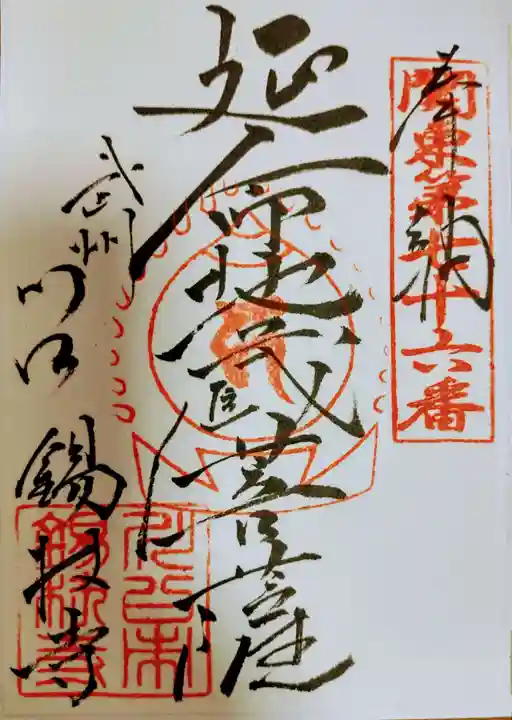 奉納
関東第七十六番
延命地蔵菩薩
武州川口
錫杖寺